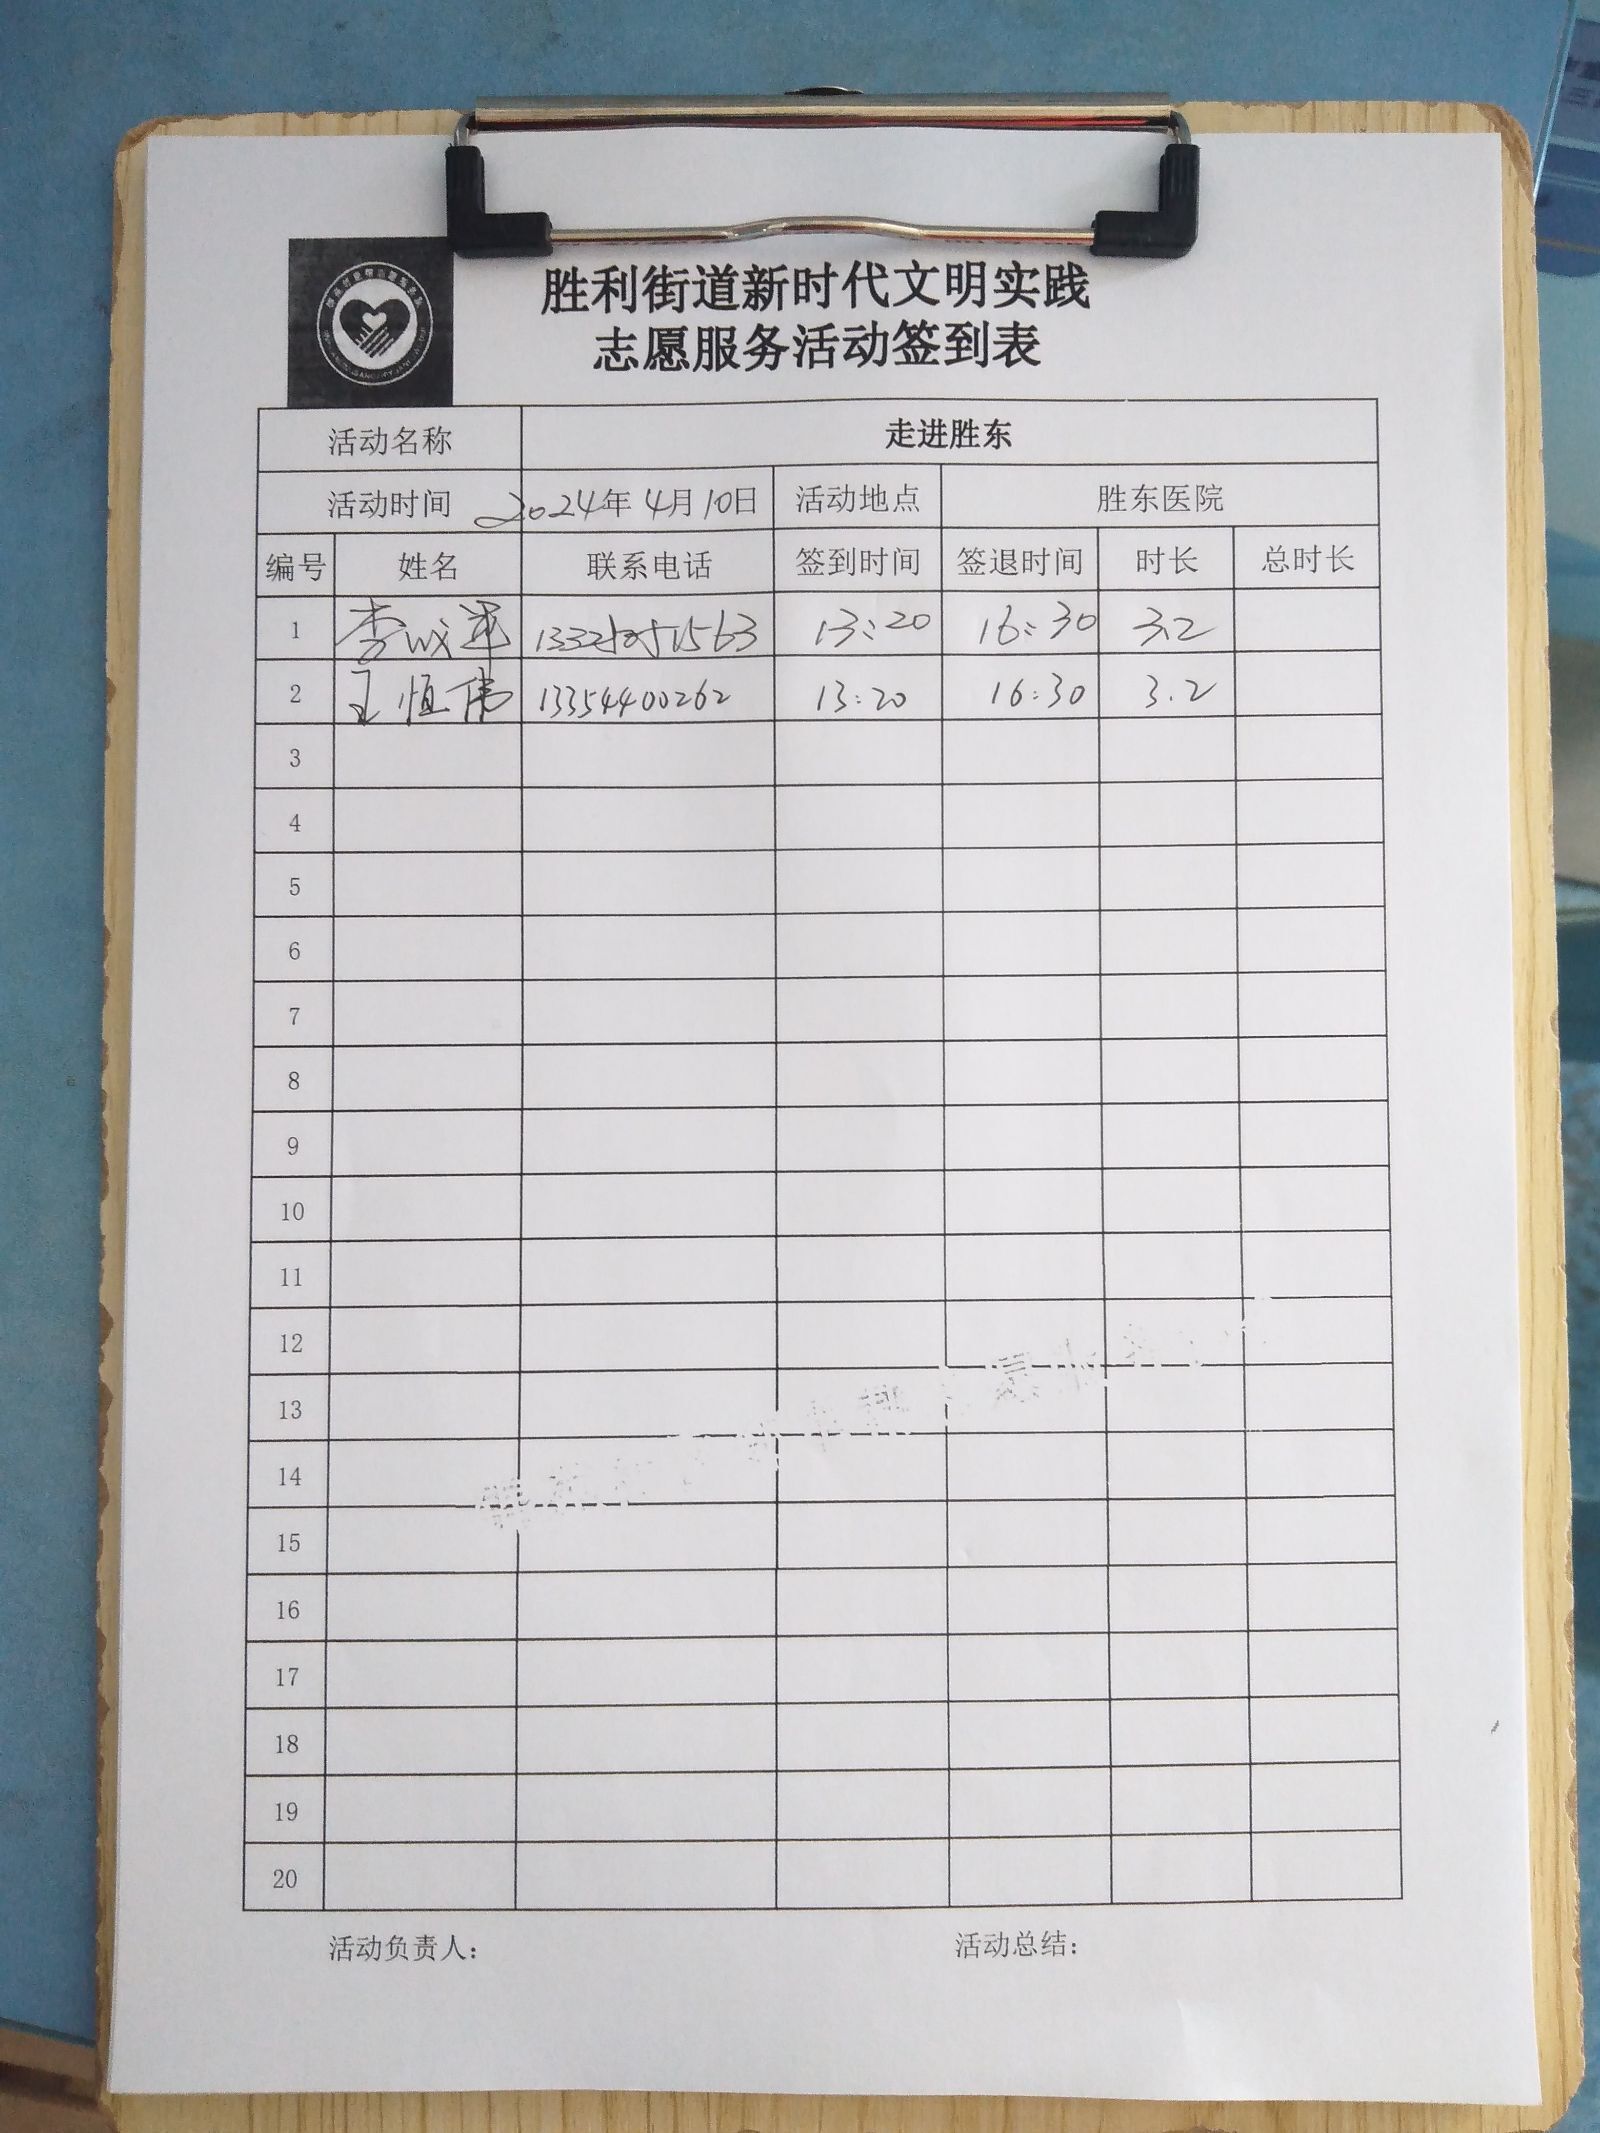 胜利街道新时代文明实践
志愿服务活动签到表
活动名称 走进胜东
活动时间 2024年4月10日 活动地点 胜东医院
编号 姓名 联系电话 签到时间 签退时间 时长 总时长
1 李 13:20 16:30 3.2
2 王恒伟 13354400262 13:20 16:30 3.2
3
4
5
6
7
8
9
10
11
12
13
14
15
16
17
18
19
20
活动负责人： 活动总结：